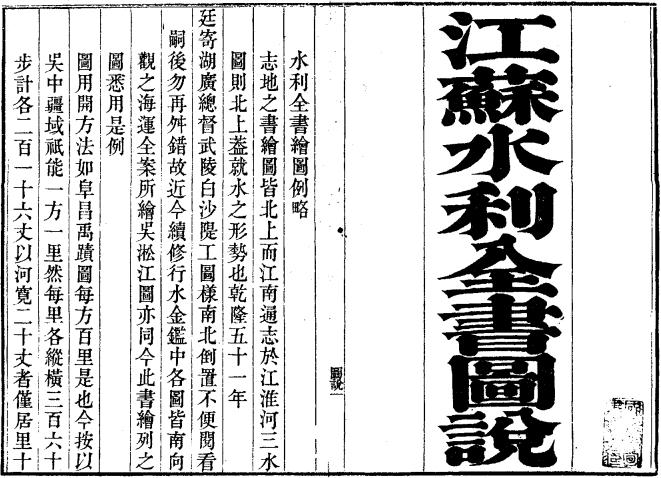 江蘇水利全書圖說
圖說一
水利全書繪圖例略
志地之書繪圖皆北上而江南通志於江淮河三水
圖則北上葢就水之形勢也乾隆五十一年
廷寄湖廣總督武陵白沙隄工圖樣南北倒置不便閱看
嗣後勿再舛錯故近今續修行水金鑑中各圖皆南向
觀之海運全案所繪吳淞江圖亦同今此書繪列之
圖悉用是例
圖用開方法如阜昌禹蹟圖每方百里是也今按以
吳中疆域祇能一方一里然每里各縱橫三百六十
步計各二百一十六丈以河寬二十丈者僅居里十